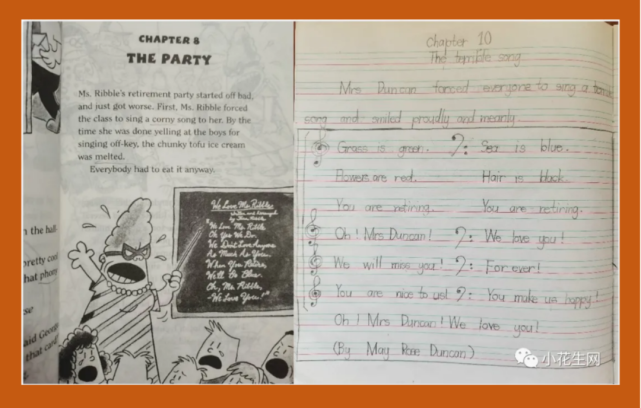 CHAPTER 8
THE PARTY
Ms. Ribble's retirement party started off bad,
and just got worse. First, Ms. Ribble forced
the class to sing a corny song to her. By the
time she was done yelling at the boys for
singing off-key, the chunky tofu ice cream
was melted.
Everybody had to eat it anyway.
We Love Ms. Ribble
We Love Ms. Ribble
Oh Yes We Do.
We Don't Love Anyone
As Much As You.
When You Retire,
We'll Be Blue.
Oh, Ms. Ribble,
We Love You!"
n the hall
pretty cool
hat phony
se
aid George
that card
Chapter 10
The terrible song
Mrs Duncan forced everyone to sing a
song and smiled proudly and meanly
Grass is green. Sea is blue.
Flowers are red. Hair is black.
You are retiring. You are retiring.
Oh! Mrs Duncan! We love you!
We will miss you! For ever!
You are nice to us! You make us happy!
Oh! Mrs Duncan! We love you!
(By May Rose Duncan)
小花生网